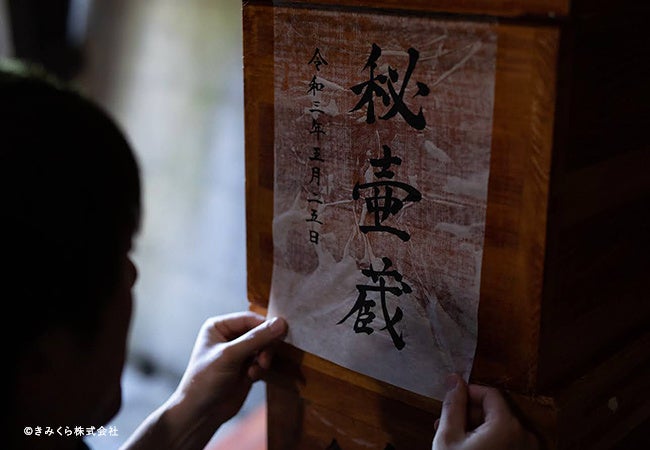 秘壺蔵
令和三年五月二五日
©きみくら株式会社